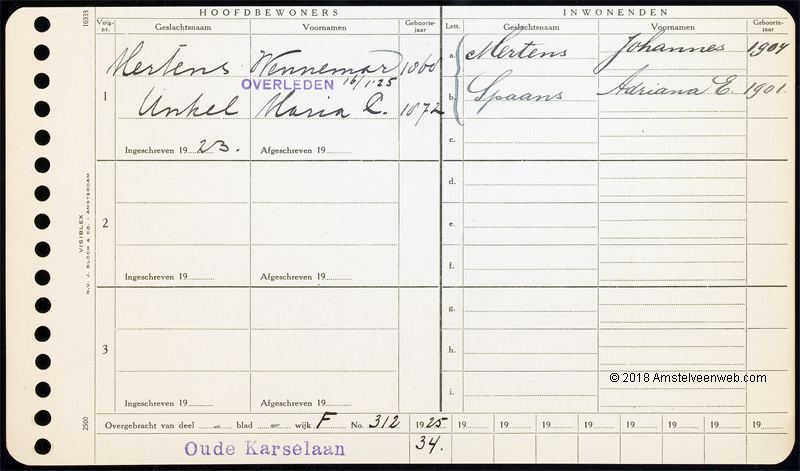 HOOFDBEWONERS
INWONENDEN
10333
Volg-nr.
Geslachtsnaam
Voornamen
Geboorte-jaar
Lett.
Geslachtsnaam
Voornamen
Geboorte-jaar
Mertens Wennemar 1860
OVERLEDEN 16/1-25
1
Unkel Maria C. 1872
Ingeschreven 19 23. Afgeschreven 19
a. Mertens Johannes 1904
b. Spaans Adriana E. 1901.
c.
2
Ingeschreven 19 Afgeschreven 19
d.
e.
f.
3
Ingeschreven 19 Afgeschreven 19
g.
h.
i.
VISIBLEX
N.V. J. BLOCH & CO. - AMSTERDAM
2500
© 2018 Amstelveenweb.com
Overgebracht van deel — blad — wijk F No. 312 1925 19 19 19 19 19 19 19 19
Oude Karselaan 34.